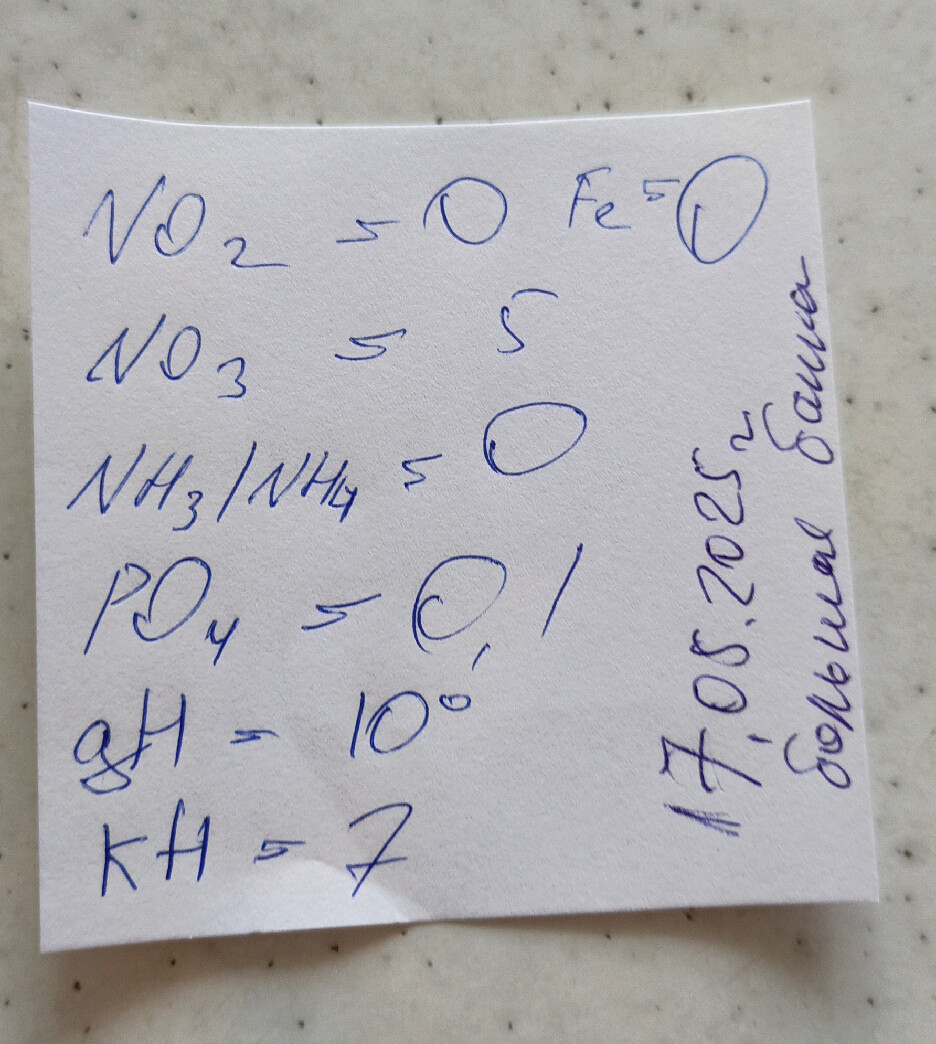 NO₂ = 0 Fe = 0
NO₃ = 5
NH₃/NH₄ = 0
PO₄ = 0,1
gH = 10°
KH = 7
17.05.2025г
большая банка